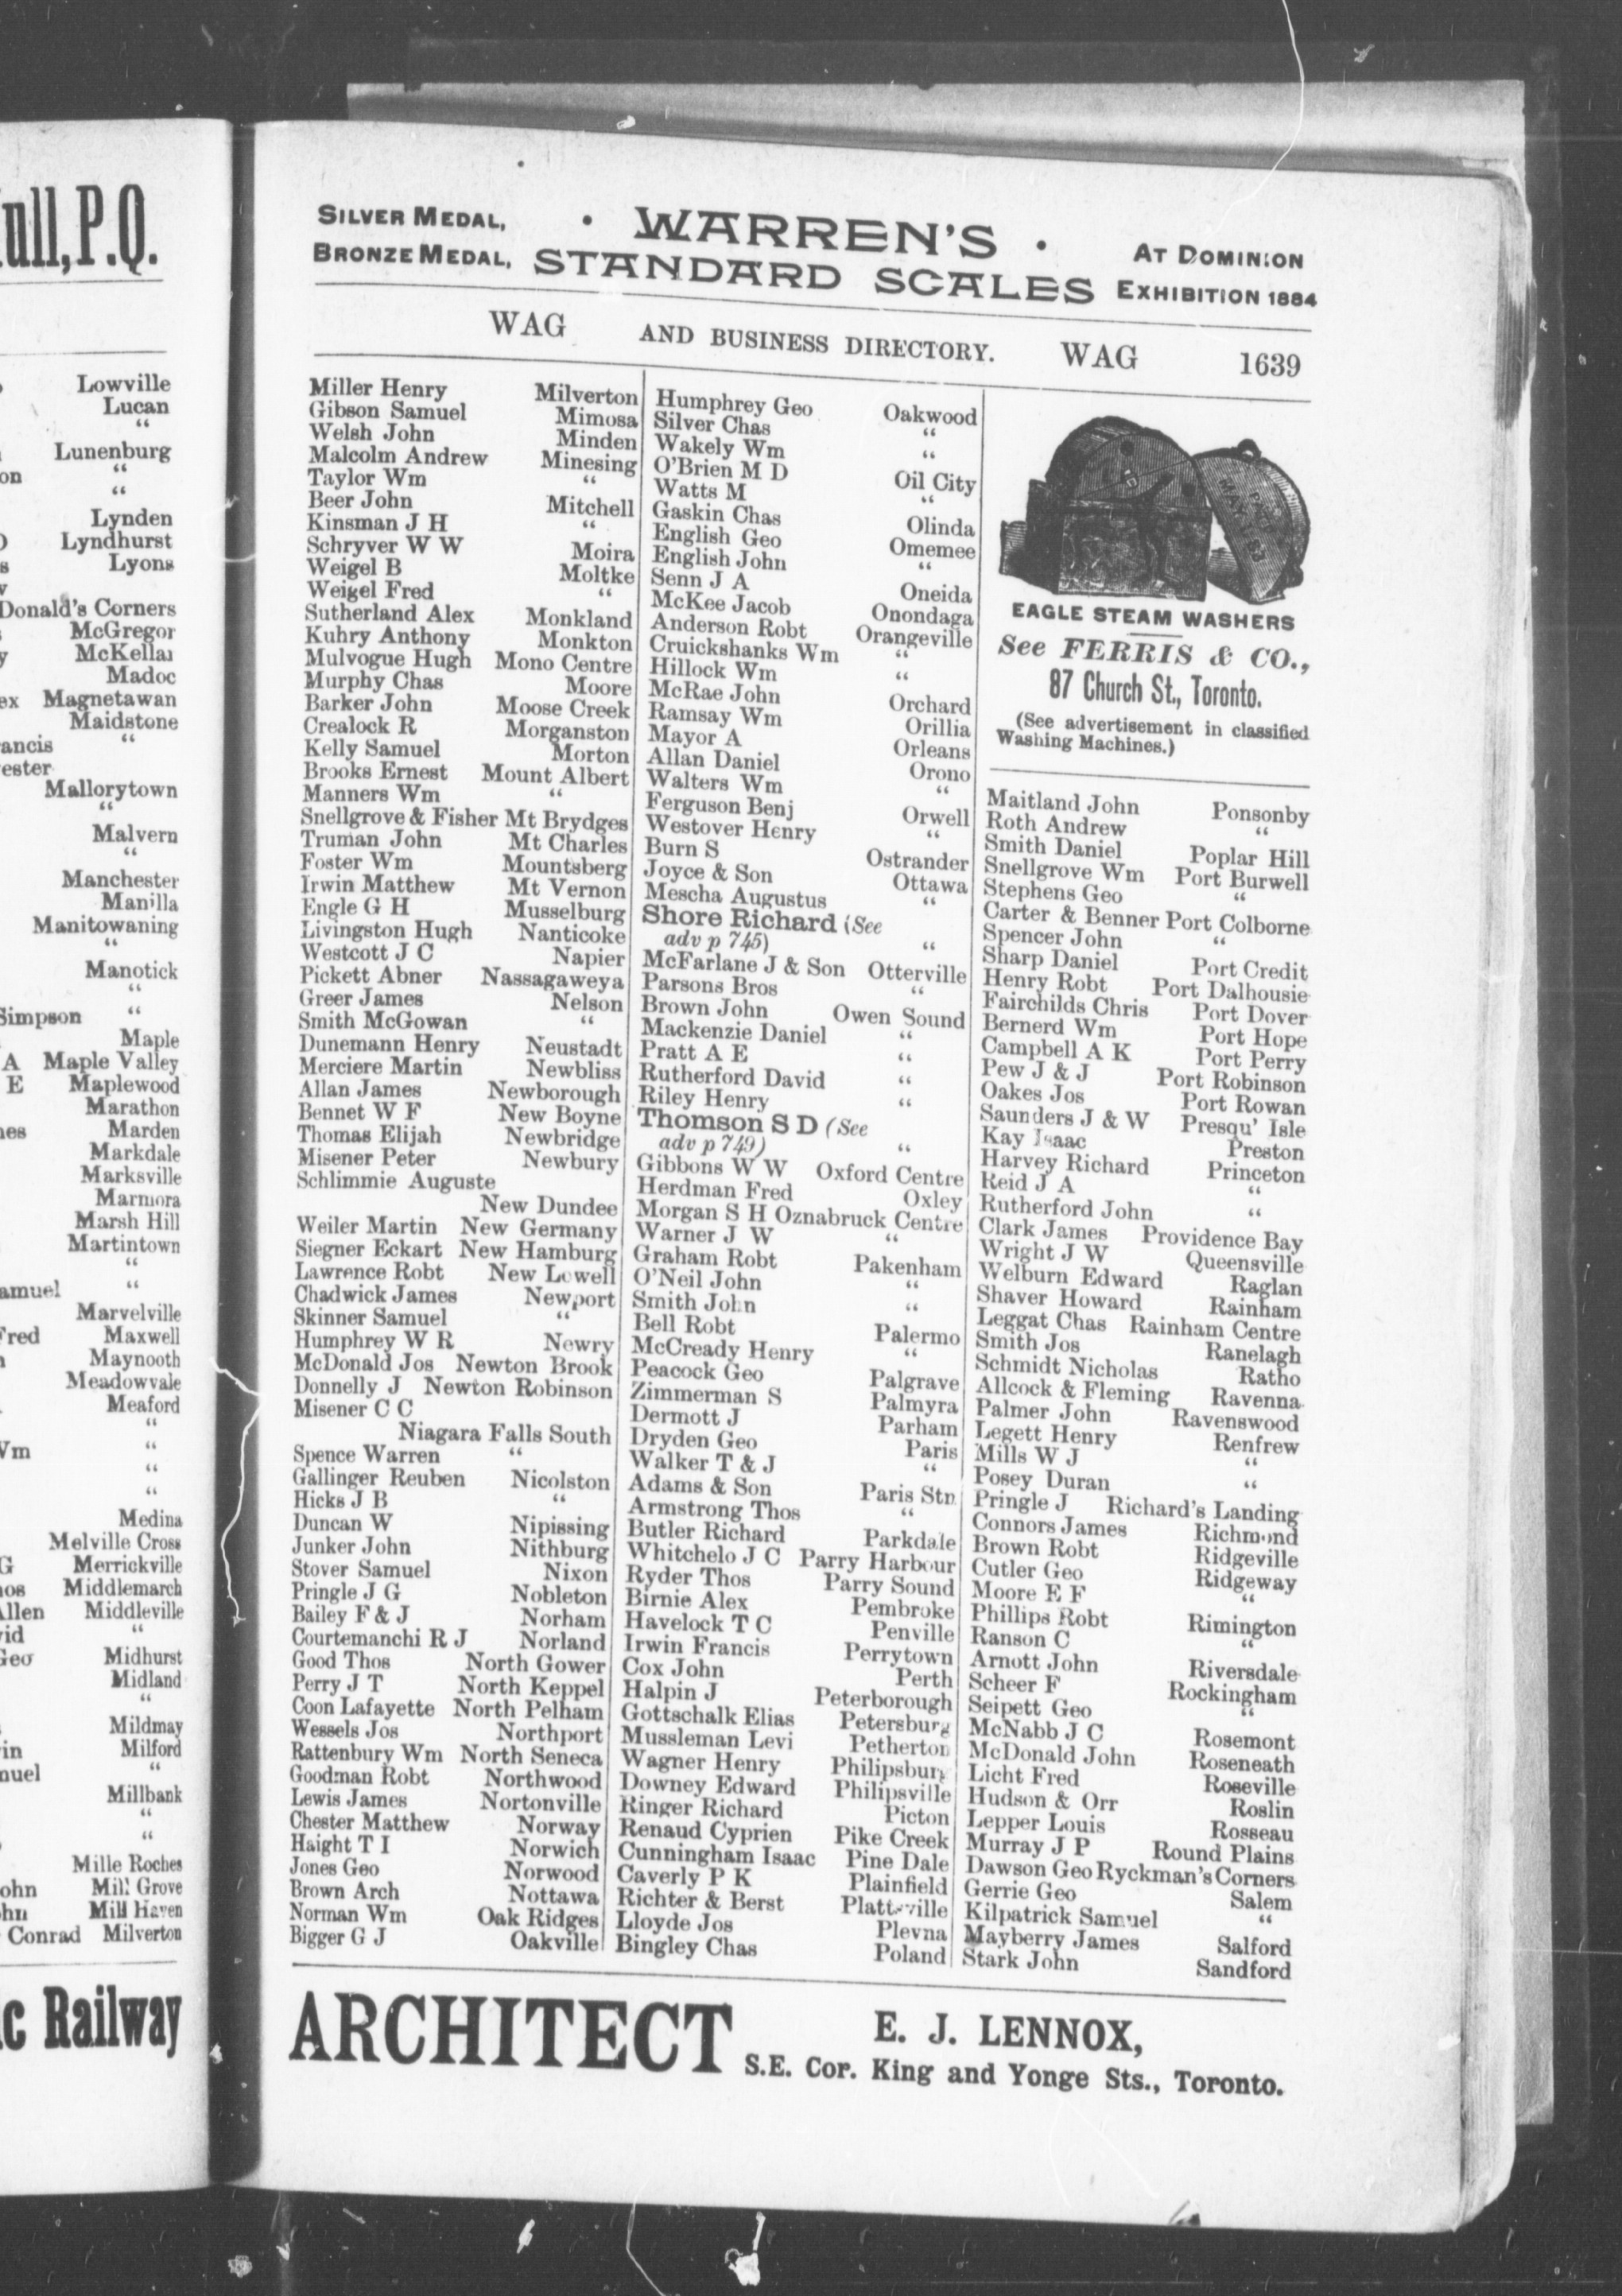 ull, P.Q.
Lowville
Lucan
“
Lunenburg
on “
“
Lynden
Lyndhurst
Lyons
Donald's Corners
McGregor
McKellar
Madoc
ex Magnetawan
Maidstone
ancis “
ester
Mallorytown
“
Malvern
“
Manchester
Manilla
Manitowaning
“
Manotick
“
Simpson “
Maple
A Maple Valley
E Maplewood
Marathon
nes Marden
Markdale
Marksville
Marmora
Marsh Hill
Martintown
“
amuel “
Marvelville
Fred Maxwell
Maynooth
Meadowvale
Meaford
“
Wm “
“
“
Medina
Melville Cross
G Merrickville
os Middlemarch
Allen Middleville
vid “
Geo Midhurst
Midland
“
Mildmay
in Milford
nuel “
Millbank
“
“
Mille Roches
ohn Mill Grove
hn Mill Haven
Conrad Milverton
c Railway
SILVER MEDAL, • WARREN'S • AT DOMINION
BRONZE MEDAL, STANDARD SCALES EXHIBITION 1884
WAG AND BUSINESS DIRECTORY. WAG 1639
Miller Henry Milverton
Gibson Samuel Mimosa
Welsh John Minden
Malcolm Andrew Minesing
Taylor Wm “
Beer John Mitchell
Kinsman J H “
Schryver W W Moira
Weigel B Moltke
Weigel Fred “
Sutherland Alex Monkland
Kuhry Anthony Monkton
Mulvogue Hugh Mono Centre
Murphy Chas Moore
Barker John Moose Creek
Crealock R Morganston
Kelly Samuel Morton
Brooks Ernest Mount Albert
Manners Wm “
Snellgrove & Fisher Mt Brydges
Truman John Mt Charles
Foster Wm Mountsberg
Irwin Matthew Mt Vernon
Engle G H Musselburg
Livingston Hugh Nanticoke
Westcott J C Napier
Pickett Abner Nassagaweya
Greer James Nelson
Smith McGowan “
Dunemann Henry Neustadt
Merciere Martin Newbliss
Allan James Newborough
Bennet W F New Boyne
Thomas Elijah Newbridge
Misener Peter Newbury
Schlimmie Auguste
New Dundee
Weiler Martin New Germany
Siegner Eckart New Hamburg
Lawrence Robt New Lowell
Chadwick James Newport
Skinner Samuel “
Humphrey W R Newry
McDonald Jos Newton Brook
Donnelly J Newton Robinson
Misener C C
Niagara Falls South
Spence Warren “
Gallinger Reuben Nicolston
Hicks J B “
Duncan W Nipissing
Junker John Nithburg
Stover Samuel Nixon
Pringle J G Nobleton
Bailey F & J Norham
Courtemanchi R J Norland
Good Thos North Gower
Perry J T North Keppel
Coon Lafayette North Pelham
Wessels Jos Northport
Rattenbury Wm North Seneca
Goodman Robt Northwood
Lewis James Nortonville
Chester Matthew Norway
Haight T I Norwich
Jones Geo Norwood
Brown Arch Nottawa
Norman Wm Oak Ridges
Bigger G J Oakville
Humphrey Geo Oakwood
Silver Chas “
Wakely Wm “
O'Brien M D Oil City
Watts M “
Gaskin Chas Olinda
English Geo Omemee
English John “
Senn J A Oneida
McKee Jacob Onondaga
Anderson Robt Orangeville
Cruickshanks Wm “
Hillock Wm “
McRae John Orchard
Ramsay Wm Orillia
Mayor A Orleans
Allan Daniel Orono
Walters Wm “
Ferguson Benj Orwell
Westover Henry “
Burn S Ostrander
Joyce & Son Ottawa
Mescha Augustus “
Shore Richard (See
adv p 745) “
McFarlane J & Son Otterville
Parsons Bros “
Brown John Owen Sound
Mackenzie Daniel “
Pratt A E “
Rutherford David “
Riley Henry “
Thomson S D (See
adv p 749) “
Gibbons W W Oxford Centre
Herdman Fred Oxley
Morgan S H Oznabruck Centre
Warner J W “
Graham Robt Pakenham
O'Neil John “
Smith John “
Bell Robt Palermo
McCready Henry “
Peacock Geo Palgrave
Zimmerman S Palmyra
Dermott J Parham
Dryden Geo Paris
Walker T & J “
Adams & Son Paris Stn
Armstrong Thos “
Butler Richard Parkdale
Whitchelo J C Parry Harbour
Ryder Thos Parry Sound
Birnie Alex Pembroke
Havelock T C Penville
Irwin Francis Perrytown
Cox John Perth
Halpin J Peterborough
Gottschalk Elias Petersburg
Mussleman Levi Petherton
Wagner Henry Philipsburg
Downey Edward Philipsville
Ringer Richard Picton
Renaud Cyprien Pike Creek
Cunningham Isaac Pine Dale
Caverly P K Plainfield
Richter & Berst Plattsville
Lloyde Jos Plevna
Bingley Chas Poland
PAT'D
MAY 1 83
EAGLE STEAM WASHERS
See FERRIS & CO.,
87 Church St., Toronto.
(See advertisement in classified
Washing Machines.)
Maitland John Ponsonby
Roth Andrew “
Smith Daniel Poplar Hill
Snellgrove Wm Port Burwell
Stephens Geo “
Carter & Benner Port Colborne
Spencer John “
Sharp Daniel Port Credit
Henry Robt Port Dalhousie
Fairchilds Chris Port Dover
Bernerd Wm Port Hope
Campbell A K Port Perry
Pew J & J Port Robinson
Oakes Jos Port Rowan
Saunders J & W Presqu' Isle
Kay Isaac Preston
Harvey Richard Princeton
Reid J A “
Rutherford John “
Clark James Providence Bay
Wright J W Queensville
Welburn Edward Raglan
Shaver Howard Rainham
Leggat Chas Rainham Centre
Smith Jos Ranelagh
Schmidt Nicholas Ratho
Allcock & Fleming Ravenna
Palmer John Ravenswood
Legett Henry Renfrew
Mills W J “
Posey Duran “
Pringle J Richard's Landing
Connors James Richmond
Brown Robt Ridgeville
Cutler Geo Ridgeway
Moore E F “
Phillips Robt Rimington
Ranson C “
Arnott John Riversdale
Scheer F Rockingham
Seipett Geo “
McNabb J C Rosemont
McDonald John Roseneath
Licht Fred Roseville
Hudson & Orr Roslin
Lepper Louis Rosseau
Murray J P Round Plains
Dawson Geo Ryckman's Corners
Gerrie Geo Salem
Kilpatrick Samuel “
Mayberry James Salford
Stark John Sandford
ARCHITECT E. J. LENNOX,
S.E. Cor. King and Yonge Sts., Toronto.